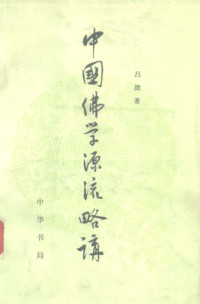 中國佛学源流略講
吕澂著
中华书局